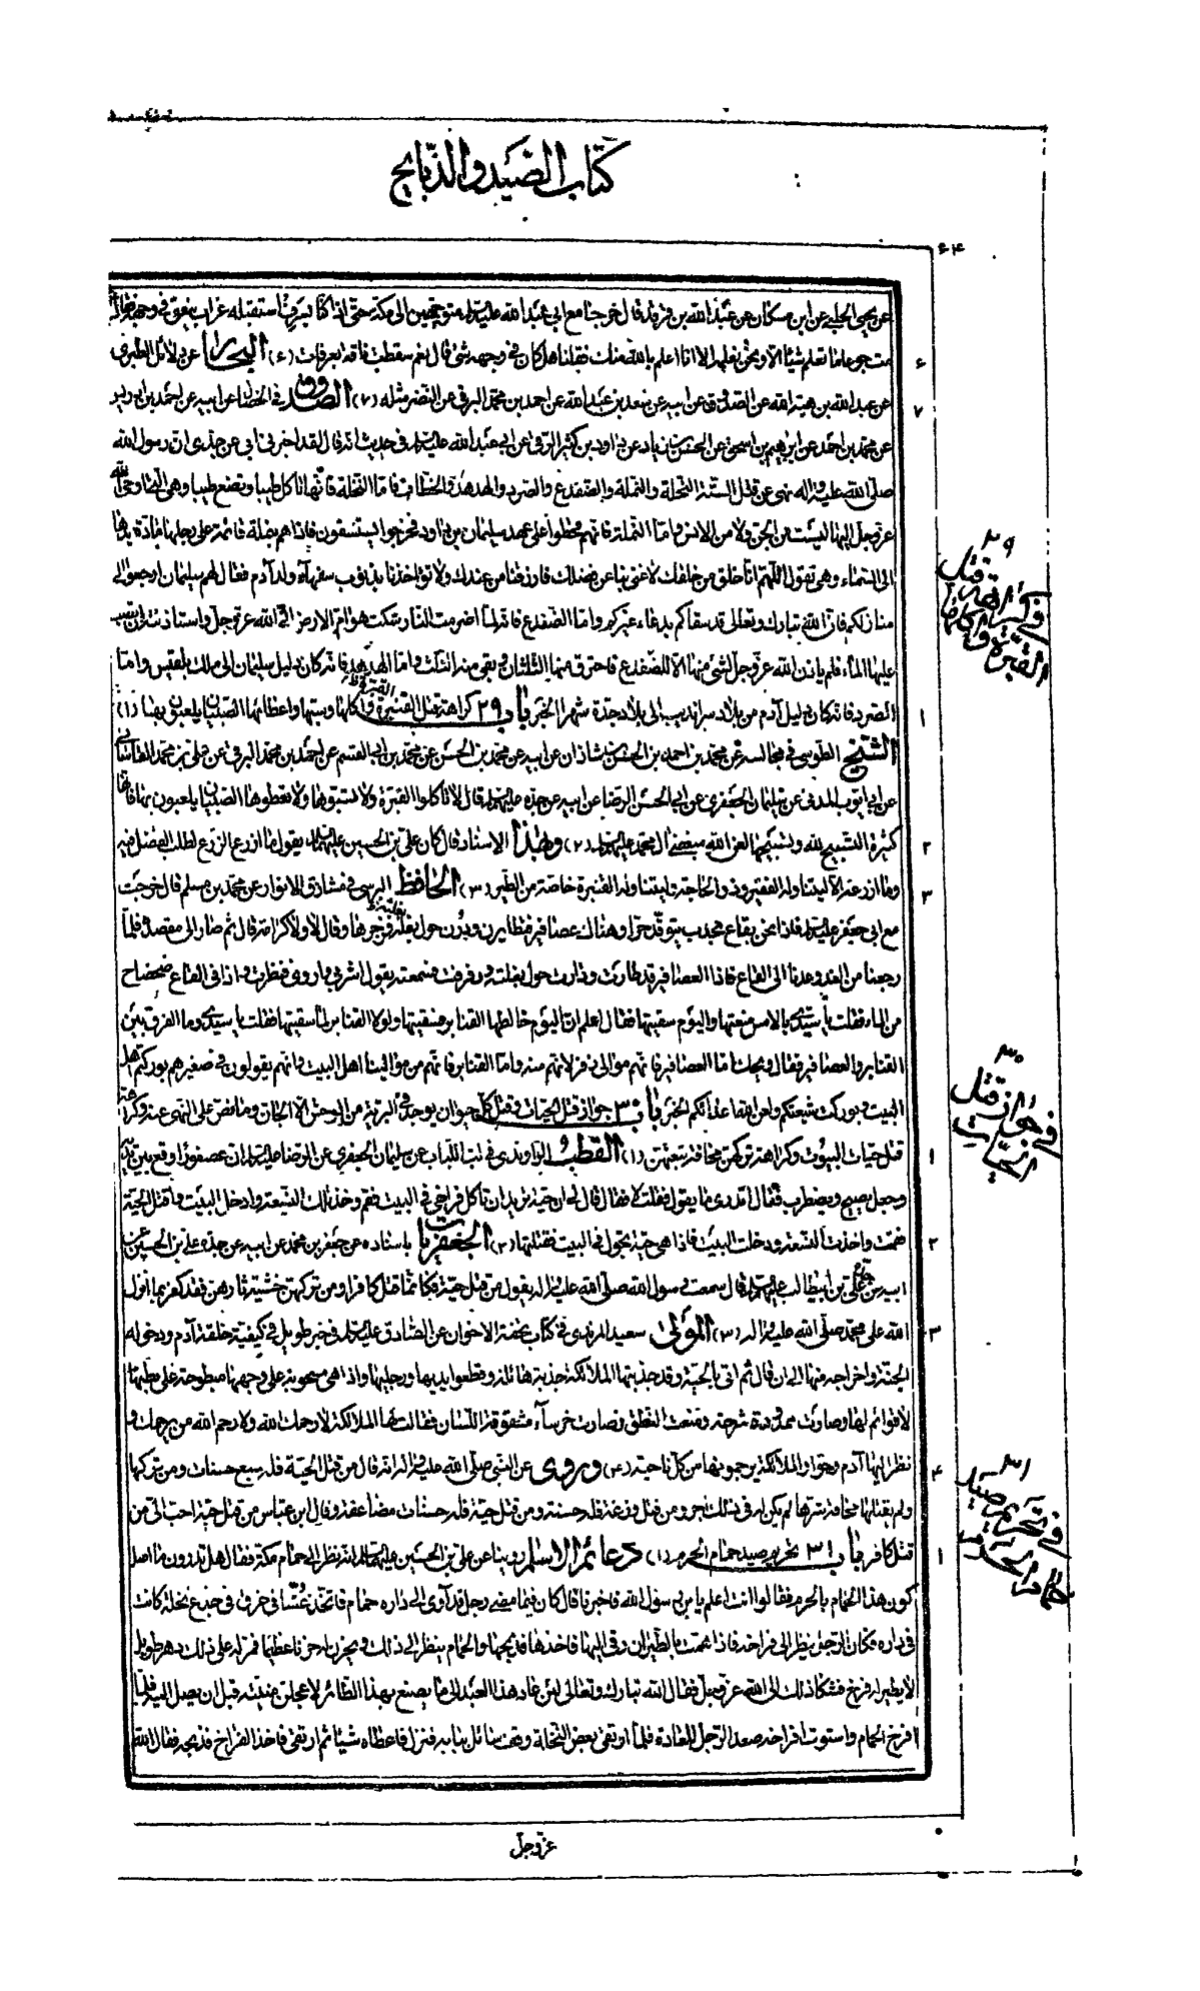 كتاب الصيد والذبايح
٤٤
عن يحيى الحلبي عن ابن مسكان عن عبد الله بن فرقد قال خرجنا مع ابي عبد الله عليه السلام متوجهين الى مكة حتى اذا كنا بسرف استقبله غراب ينعق في وجهه فقال
مت جوعا ما تعلم شيئا الا ونحن نعلمه الا انا اعلم بالله منك فقلنا هل كان في وجهه شئ قال نعم سقطت ناقة بعرفات (٦) البحار عن دلائل الطبري
عن عبد الله بن هبة الله عن الصدوق عن ابيه عن سعد بن عبد الله عن احمد بن محمد البرقي عن النضر مثله (٧) الصدوق في الخصال عن ابيه عن احمد بن ادريس
عن محمد بن احمد عن ابراهيم بن اسحق عن الحسن بن زياد عن داود بن كثير الرقي عن ابي عبد الله عليه السلام في حديث انه قال لقد اخبرني ابي عن جدي ان رسول الله
صلى الله عليه واله نهى عن قتل الستة النحلة والنملة والضفدع والصرد والهدهد والخطاف فاما النحلة فانها تاكل طيبا وتضع طيبا وهي التي اوحى الله
عز وجل اليها ليست من الجن ولا من الانس واما النملة فانهم قحطوا على عهد سليمان بن داود فخرجوا يستسقون فاذا هم بنملة قائمة على رجليها مادة يدها
الى السماء وهي تقول اللهم انا خلق من خلقك لا غنى بنا عن فضلك فارزقنا من عندك ولا تؤاخذنا بذنوب سفهاء ولد آدم فقال لهم سليمان ارجعوا الى
منازلكم فان الله تبارك وتعالى قد سقاكم بدعاء غيركم واما الضفدع فانه لما اضرمت النار شكت هوام الارض الى الله عز وجل واستاذنته ان تصب
عليها الماء فلم ياذن الله عز وجل لشئ منها الا للضفدع فاحترق منها الثلثان وبقي منه الثلث واما الهدهد فانه كان دليل سليمان الى ملك بلقيس واما
الصرد فانه كان دليل آدم من بلاد سرانديب الى بلاد جدة شهرا الخبر باب ٢٩ كراهة قتل القنبرة واكلها وسبها واعطائها الصبيان يلعبون بها (١)
الشيخ الطوسي في مجالسه عن محمد بن احمد بن الحسن بن شاذان عن ابيه عن محمد بن الحسن عن محمد بن ابي القسم عن احمد بن محمد البرقي عن علي بن محمد القاساني
عن ابي ايوب المدني عن سليمان الجعفري عن ابي الحسن الرضا عن ابيه عن جده عليهم السلام قال لا تاكلوا القنبرة ولا تسبوها ولا تعطوها الصبيان يلعبون بها فانها
كثيرة التسبيح لله وتسبيحها لعن الله مبغضي آل محمد عليهم السلام (٢) وبهذا الاسناد قال كان علي بن الحسين عليهما السلام يقول ما ازرع الزرع لطلب الفضل فيه
وما ازرعه الا ليتناوله الفقير وذو الحاجة وليتناوله القنبرة خاصة من الطير (٣) الحافظ البرسي في مشارق الانوار عن محمد بن مسلم قال خرجت
مع ابي جعفر عليه السلام فاذا نحن بقاع مجدب يتوقد حرا وهناك عصافير فتطايرن ودرن حول بغلته فزجرها وقال لا ولا كرامة قال ثم صار الى مقصده فلما
رجعنا من الغد وعدنا الى القاع فاذا العصافير قد طارت ودارت حول بغلته ورفرفت فسمعته يقول اشربي واروي فنظرت واذا في القاع ضحضاح
من الماء فقلت يا سيدي بالامس منعتها واليوم سقيتها فقال اعلم ان اليوم خالطها القنابر فسقيتها ولولا القنابر لما سقيتها فقلت يا سيدي وما الفرق بين
القنابر والعصافير فقال ويحك اما العصافير فانهم موالي زفر لانهم منه واما القنابر فانهم من موالينا اهل البيت وانهم يقولون في صفيرهم بوركتم اهل
البيت وبوركت شيعتكم ولعن الله اعدائكم الخبر باب ٣٠ جواز قتل الحيات وقتل كل حيوان يوجد في البرية من الوحش الا الجان وما نص على النهي عنه وكراهة
قتل حيات البيوت وكراهة تركهن مخافة تبعتهن (١) القطب الراوندي في لب اللباب عن سليمان الجعفري عن الرضا عليه السلام ان عصفورا وقع بين يديه
وجعل يصيح ويضطرب فقال اتدري ما يقول فقلت لا فقال قال لي ان حية تريد ان تاكل فراخي في البيت فقم وخذ تلك النسعة وادخل البيت واقتل الحية
فقمت واخذت النسعة ودخلت البيت فاذا هي حية تجول في البيت فقتلتها (٢) الجعفريات باسناده عن جعفر بن محمد عن ابيه عن جده علي بن الحسين عن
ابيه عن علي بن ابيطالب عليهم السلام قال سمعت رسول الله صلى الله عليه واله يقول من قتل حية فكانما قتل كافرا ومن تركهن خشية ثارهن فقد كفر بما انزل
الله على محمد صلى الله عليه واله (٣) المولى سعيد المزيدي في كتاب تحفة الاخوان عن الصادق عليه السلام في خبر طويل في كيفية خلقة آدم ودخوله
الجنة واخراجه منها الى ان قال ثم اتى بالحية وقد جذبتها الملائكة جذبة هائلة وقطعوا يديها ورجليها واذا هي مسحوبة على وجهها مبطوحة على بطنها
لا قوائم لها وصارت ممدودة شرحة ومنعت النطق وصارت خرساء مشقوقة اللسان فقالت لها الملائكة لا رحمك الله ولا رحم الله من يرحمك و
نظر اليها آدم وحوا والملائكة يرجمونها من كل ناحية (٤) وروي عن النبي صلى الله عليه واله انه قال من قتل الحية فله سبع حسنات ومن تركها
ولم يقتلها مخافة شرها لم يكن له في ذلك اجر ومن قتل وزغة فله حسنة ومن قتل حية فله حسنات مضاعفة وقال ابن عباس من قتل حية احب الى من
قتل كافر باب ٣١ تحريم صيد حمام الحرم (١) دعائم الاسلام روينا عن علي بن الحسين عليهما السلام انه نظر الى حمام مكة فقال هل تدرون ما اصل
كون هذا الحمام بالحرم فقالوا انت اعلم يا بن رسول الله فاخبرنا قال كان فيما مضى رجل قد آوى الى داره حمام فاتخذ عشا في خرق في جذع نخلة كانت
في داره فكان الرجل ينظر الى فراخه فاذا همت بالطيران رقى اليها فاخذها فذبحها والحمام ينظر الى ذلك ويحزن له حزنا عظيما فمر له على ذلك دهر طويل
لا يطير له فرخ فشكا ذلك الى الله عز وجل فقال الله تبارك وتعالى لئن عاد هذا العبد الى ما يصنع بهذا الطائر لاعجلن منيته قبل ان يصل اليه فلما
افرخ الحمام واستوت افراخه صعد الرجل للعادة فلما ارتقى بعض النخلة وقف سائل ببابه فنزل فاعطاه شيئا ثم ارتقى فاخذ الفراخ فذبحه فقال الله
عز وجل
٦
٧
١
٢
٣
١
٢
٣
٤
١
٢٩
في كراهة قتل
القنبرة واكلها
٣٠
في جواز قتل
الحيات
٣١
في تحريم صيد
حمام الحرم